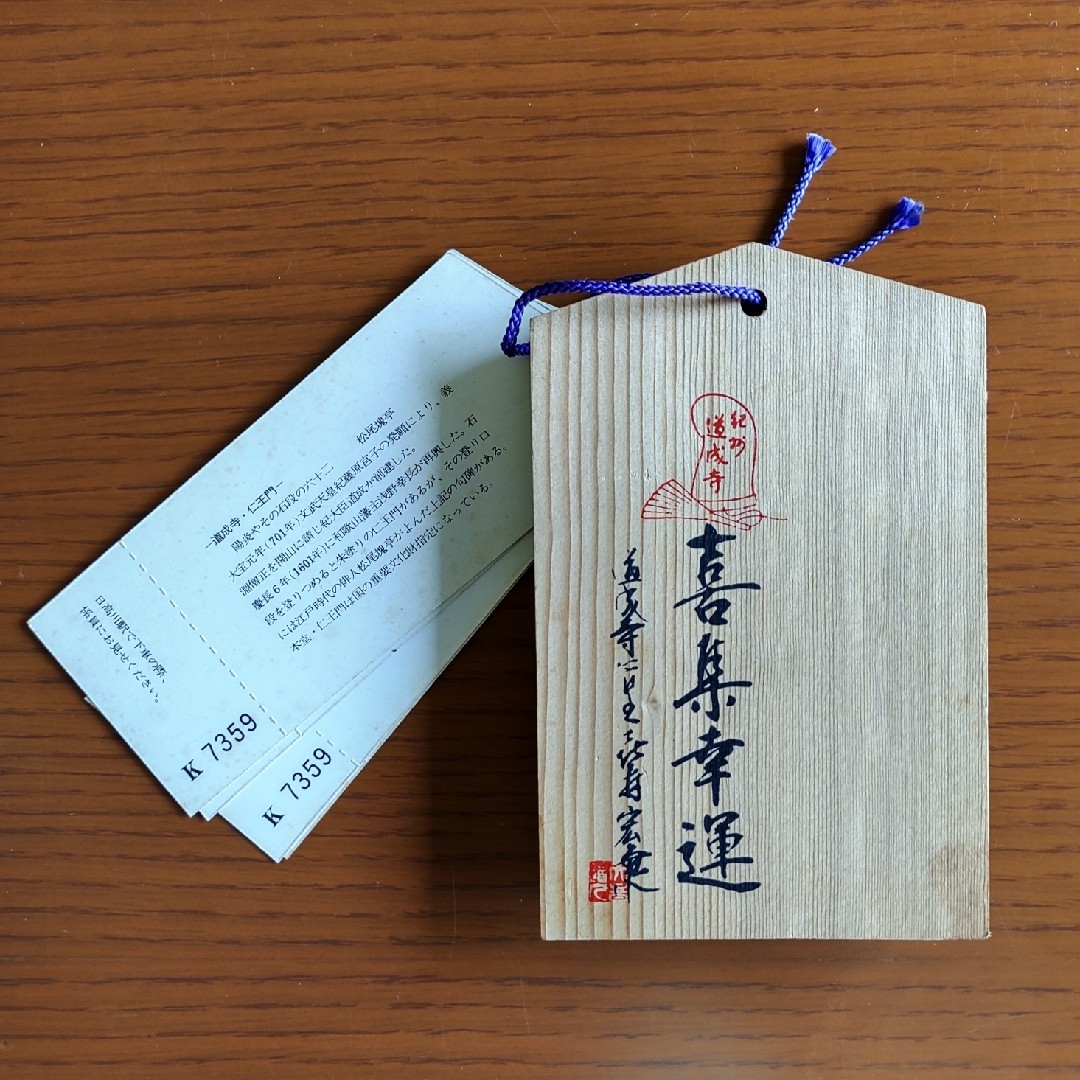 ―道成寺・仁王門―
陽炎やその石段の六十二　松尾塊亭
大宝元年(701年)文武天皇紀藤原宮子の発願により、義
淵僧正を開山に請じ紀大臣道成が創建した。
慶長6年(1601年)に和歌山藩主浅野幸長が再興した。石
段を登りつめると朱塗りの仁王門があるが、その登り口
には江戸時代の俳人松尾塊亭がよんだ上記の句碑がある。
本堂・仁王門は国の重要文化財指定になっている。
日高川駅で下車の際、
係員にお見せください。
K 7359
K 7359
紀州
道成寺
喜集幸運
道成寺